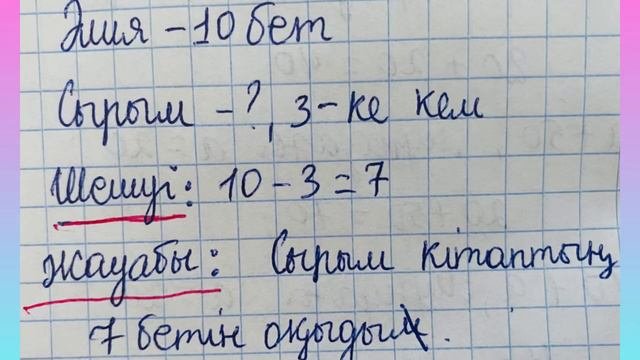 Элия – 10 бет
Сырым – ?, 3-ке кем
Шешуі: 10 – 3 = 7
Жауабы: Сырым кітаптың
7 бетін оқыды.